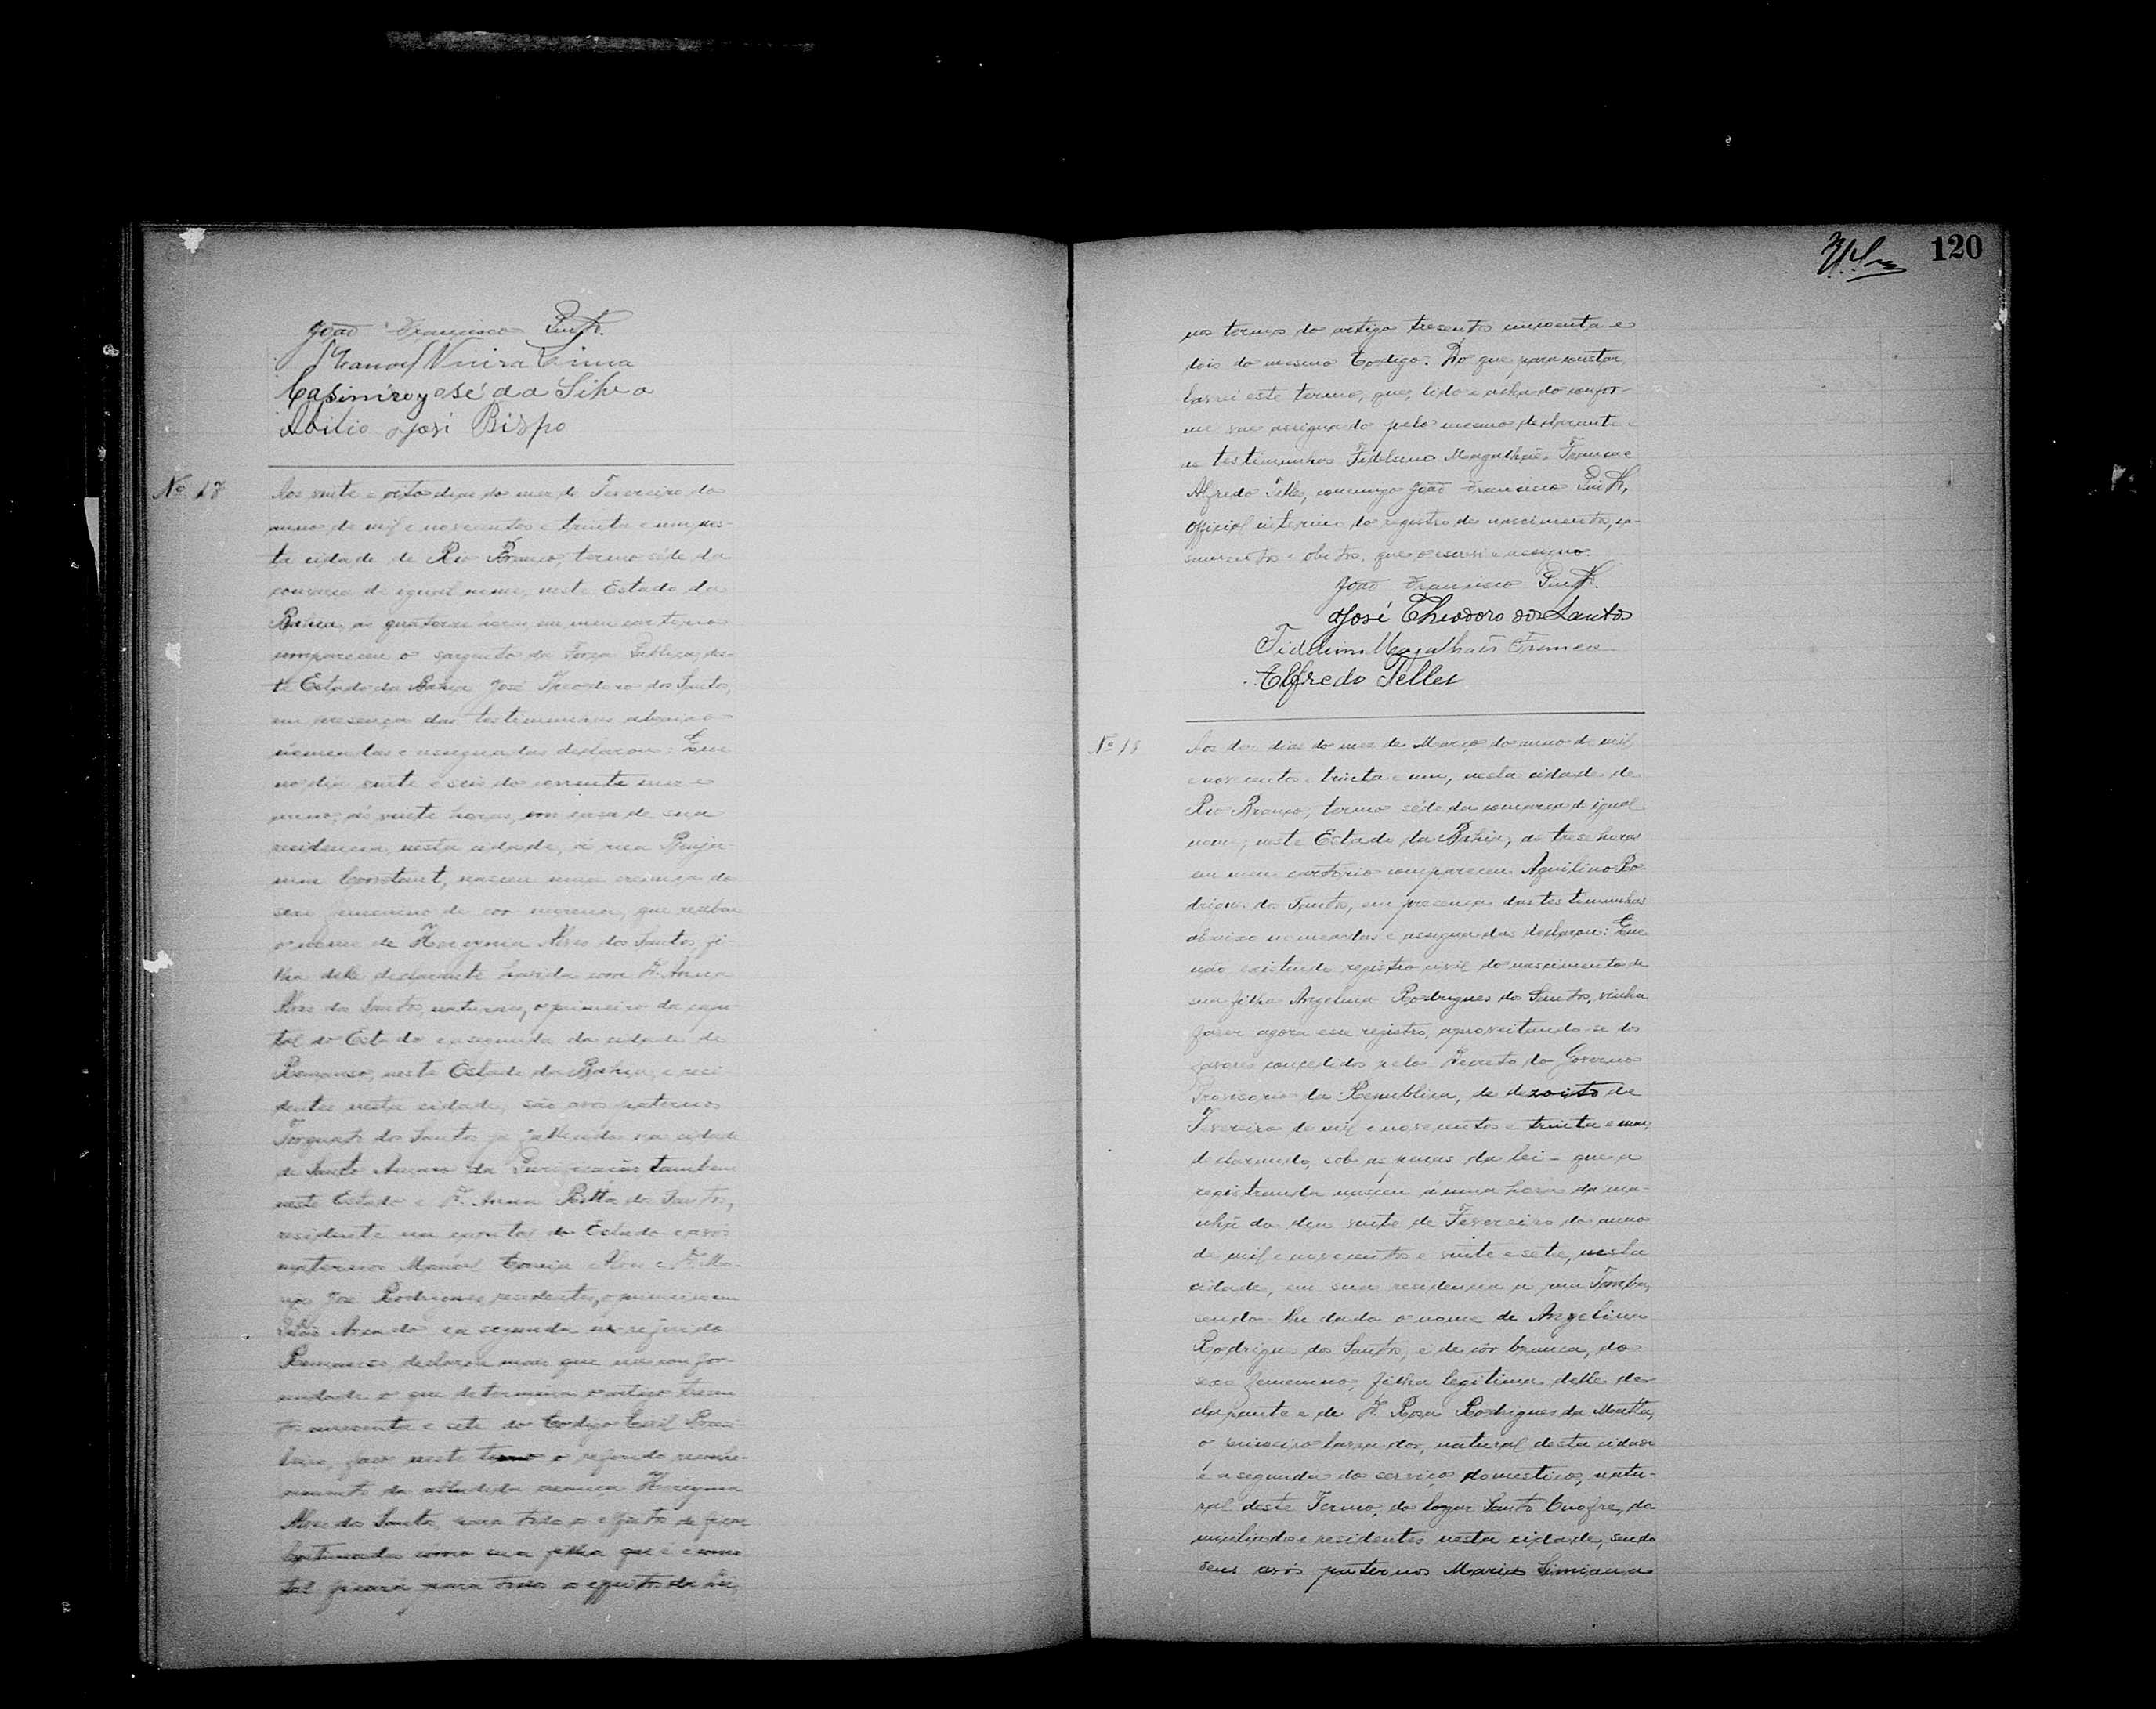 João Francisco
Manoel Vieira Lima
Casimiro José da Silva
Abilio José Bispo
Nº 17
Aos vinte e oito dias do mez de Fevereiro do
anno de mil e novecentos e trinta e um, nes-
ta cidade de Rio Branco, termo séde da
comarca de egual nome, neste Estado da
Bahia, as quatorze horas, em meu cartorio
compareceu o sargento da Força Publica des-
te Estado da Bahia José Theodoro dos Santos,
em presença das testimunhas abaixo
nomeadas e assignadas declarou: Que
no dia vinte e seis do corrente mez e
anno, ás vinte horas, em casa de sua
residencia nesta cidade, á rua Benja-
min Constant, nasceu uma creança do
sexo femenino de cor morena, que recebeu
o nome de Alves dos Santos, fi-
lha delle declarante havida com D. Anna
Alves dos Santos, naturaes, o primeiro da capi-
tal do Estado e a segunda da cidade de
Remanso, neste Estado da Bahia, e resi-
dentes nesta cidade, são avós paternos
Torquato dos Santos ja fallecido na cidade
de Santo Amaro da Purificação, tambem
neste Estado e D. Anna Ritta dos Santos,
residente na capital do Estado e avós
maternos Manoel Alves e D. Ma-
José Rodrigues, residentes, o primeiro em
e a segunda no referido
Remanso, declarou mais que na confor-
midade o que determina o artigo tresen-
tos e cincoenta e sete do Codigo Civil Brasi-
leiro, faz neste termo o referido reconhe-
cimento da alludida creança
Alves dos Santos, para todos os effeitos de ficar
como sua filha que é e como
tal ficará para todos os effeitos da lei,
120
nos termos do artigo tresentos cincoenta e
dois do mesmo Codigo. Do que para constar,
lavrei este termo, que, lido e achado confor-
me vae assignado pelo mesmo declarante e
as testimunhas Fidelcino Magalhães Franca e
Alfredo Telles, commigo João Francisco
official interino do registro de nascimentos, ca-
samentos e obitos, que o escrevi e assigno.
João Francisco
José Theodoro dos Santos
Magalhães Franca
Alfredo Telles
Nº 18
Aos dez dias do mez de Março do anno de mil
e novecentos e trinta e um, nesta cidade de
Rio Branco, termo séde da comarca de igual
nome, neste Estado da Bahia, as trese horas
em meu cartorio compareceu Aquilino Ro-
drigues dos Santos, em presença das testimunhas
abaixo nomeadas e assignadas declarou: Que
não existindo registro civil do nascimento de
sua filha Angelina Rodrigues dos Santos, vinha
fazer agora esse registro, aproveitando-se dos
favores concedidos pelo Decreto do Governo
Provisorio da Republica, de dezoito de
Fevereiro de mil e novecentos e trinta e um,
declarando, sob as penas da lei - que a
registranda nasceu á uma hora da ma-
nhã do dia vinte de Fevereiro do anno
de mil e novecentos e vinte e sete, nesta
cidade, em sua residencia a rua
sendo-lhe dado o nome de Angelina
Rodrigues dos Santos, é de côr branca, do
sexo femenino, filha legitima delle de-
clarante e de D. Rosa Rodrigues da Matta,
o primeiro lavrador, natural desta cidade
e a segunda do serviço domestico, natu-
ral deste Termo, do logar Santo Onofre, do-
miciliados e residentes nesta cidade, sendo
seus avós paternos Maria Simiana